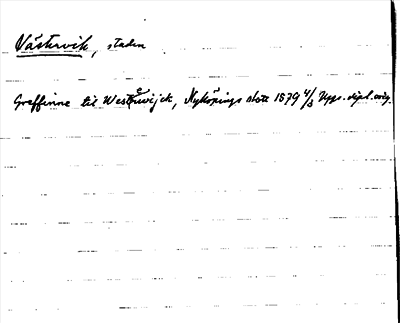 Västervik, staden
Greffinne til Westerwijck, Nyköpings slott 1579 4/3 Upps. dipl. orig.